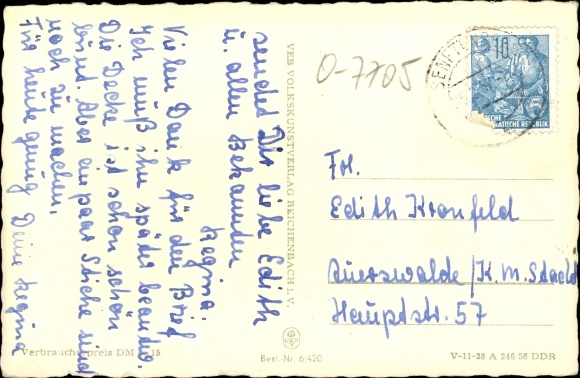 sendet Dir liebe Edith
u. allen Bekannten
Regina.
Vielen Dank für den Brief
Ich muß ihn später beantw.
Die Decke ist schon schön
bunt. Aber ein paar Stiche sind
noch zu machen.
Für heute genug Deine Regina
VEB VOLKSKUNSTVERLAG REICHENBACH I. V.
O-7705
SENFTENB
16
DEUTSCHE
DEMOKRATISCHE REPUBLIK
Frl.
Edith Kronfeld
Auerswalde /K.M.Stadt
Hauptstr. 57
Verbraucherpreis DM 0,15
Best. Nr. 6/420
V-11-28 A 246 56 DDR